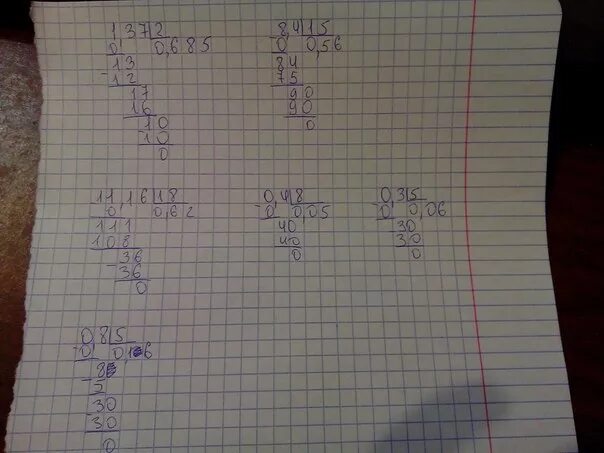 1,37|2
0 0,685
13
-12
17
16
10
-10
0
8,4|15
0 0,56
84
75
90
90
0
11,16|18
0 0,62
111
108
36
-36
0
-0,4|8
0 0,05
40
40
0
-0,3|5
0 0,06
30
30
0
0,8|5
-0 0,16
8
-5
30
-30
0